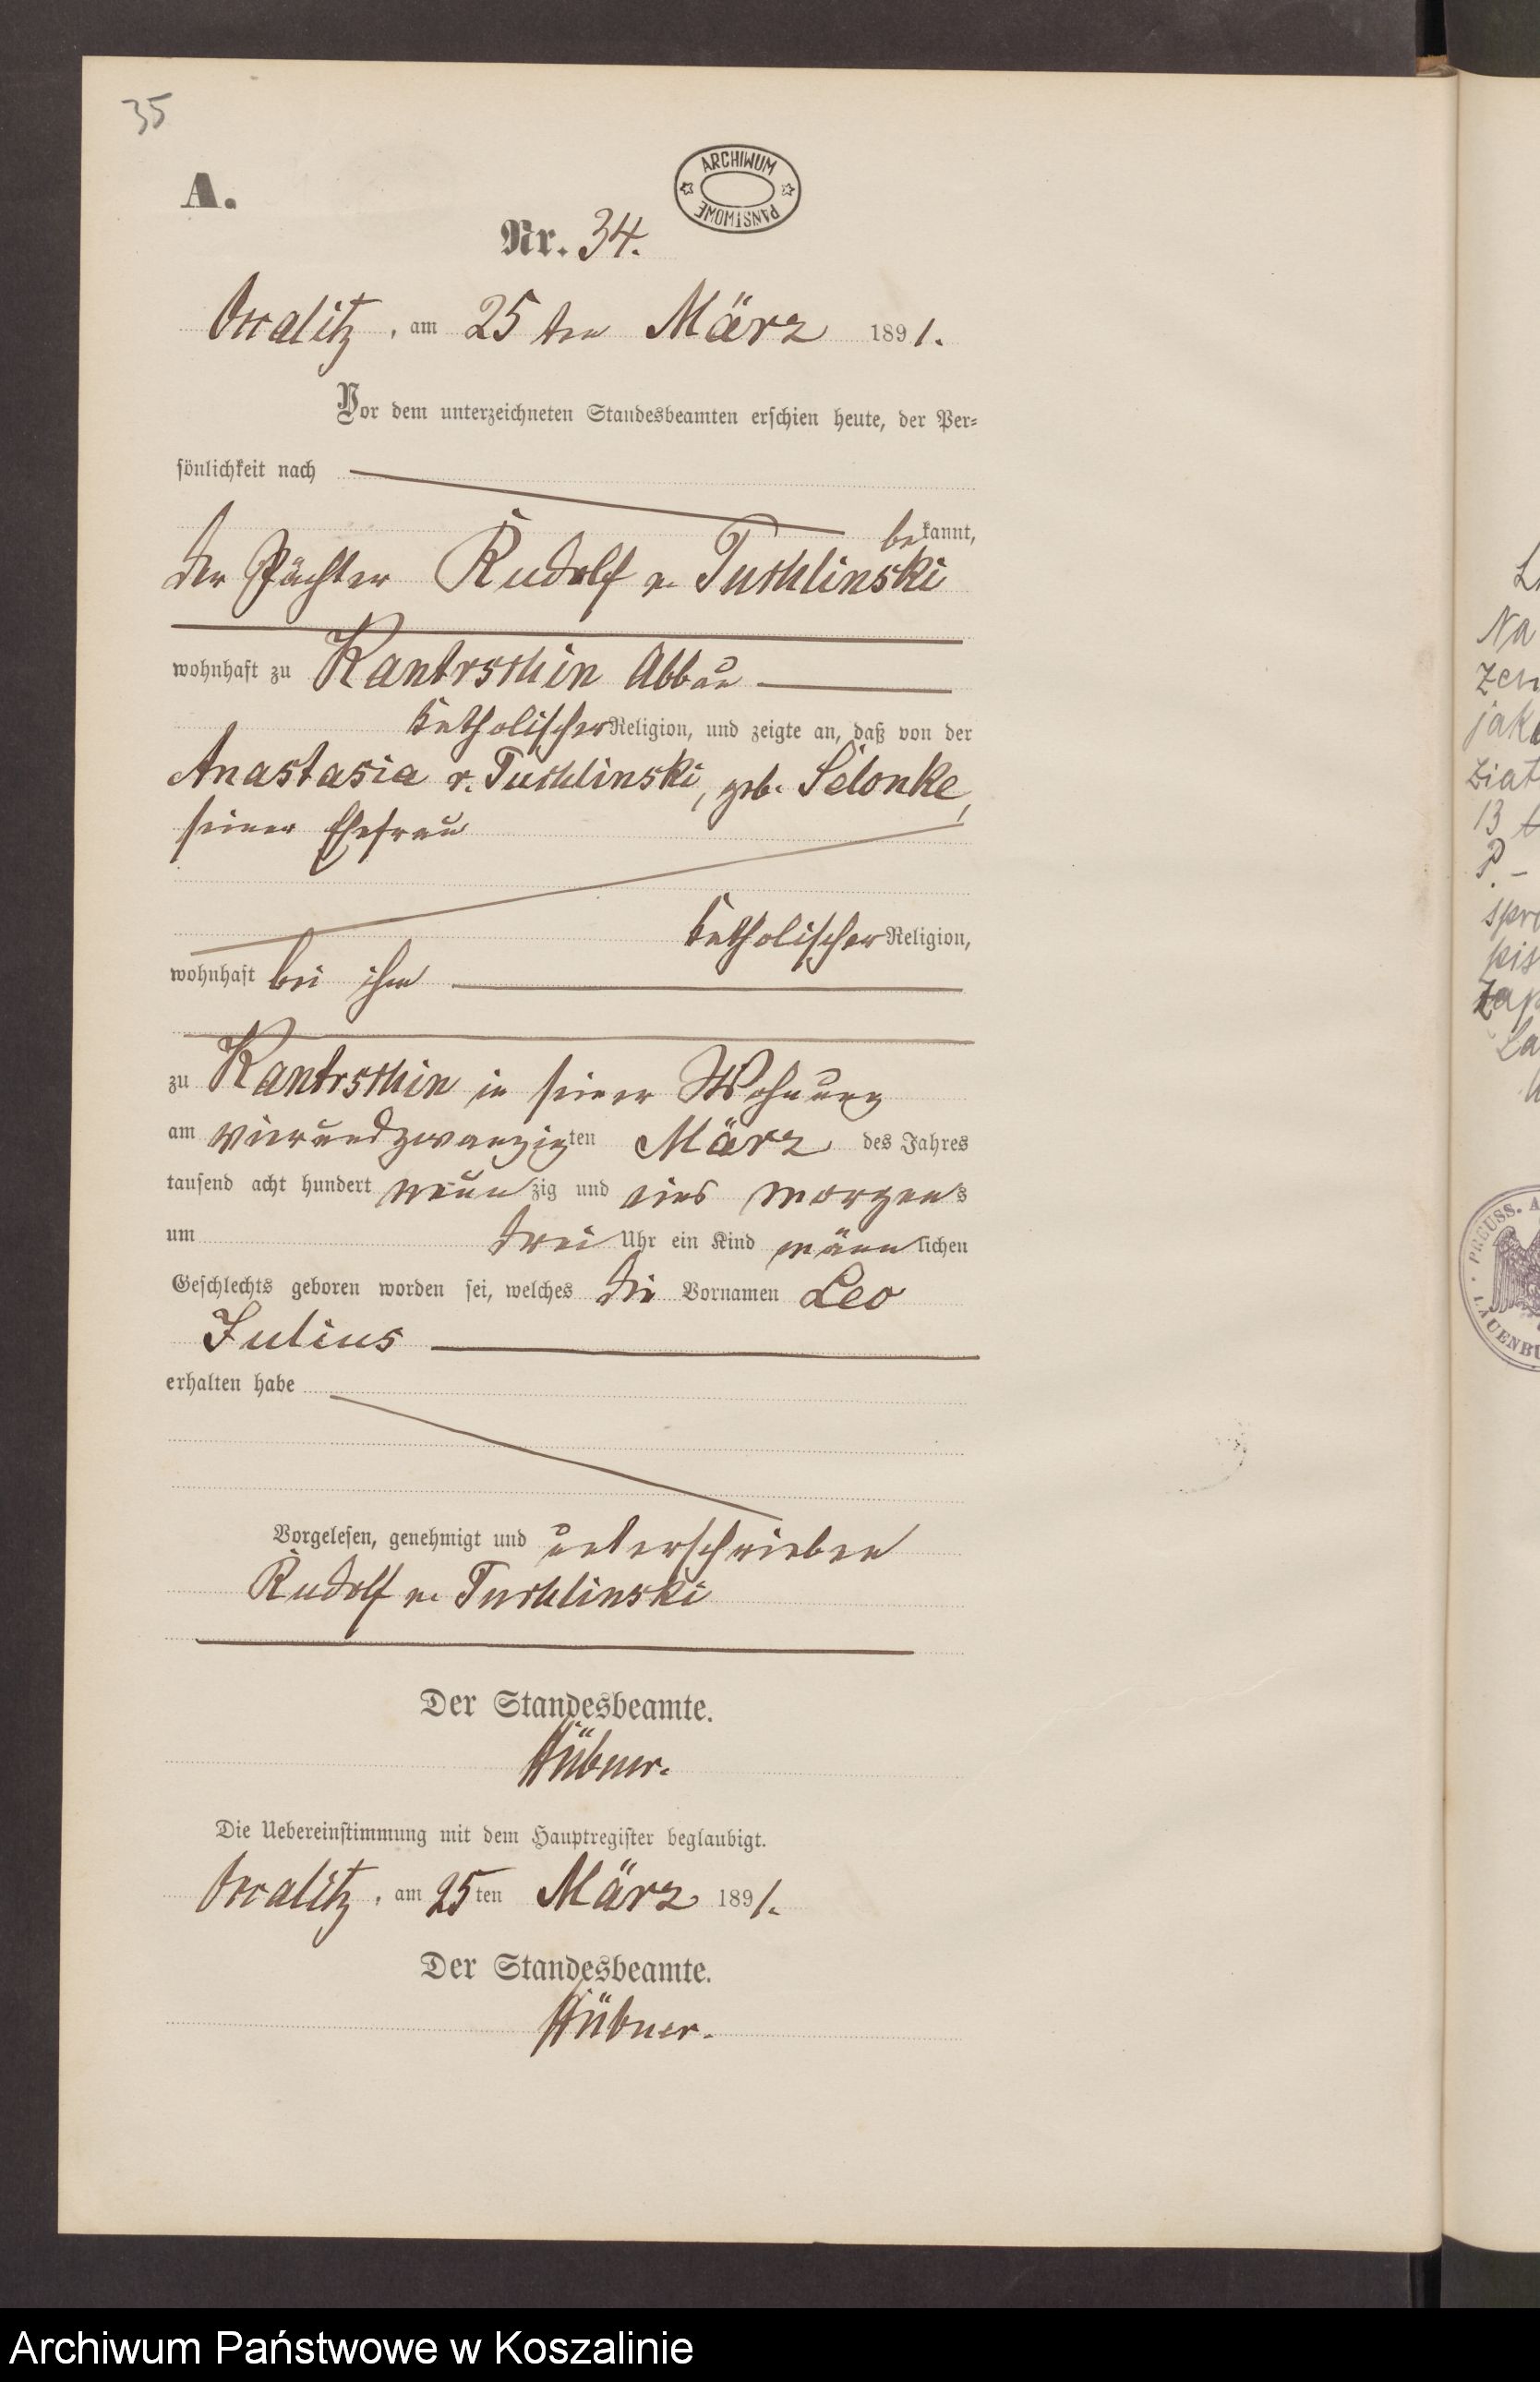 35
ARCHIWUM PAŃSTWOWE
A.
Nr. 34.
Occalitz, am 25ten März 1891.
Vor dem unterzeichneten Standesbeamten erschien heute, der Per=
sönlichkeit nach
bekannt,
der Pächter Rudolf v. Tuchlinski
wohnhaft zu Kantrschin Abbau
katholischer Religion, und zeigte an, daß von der
Anastasia v. Tuchlinski, geb. Selonke,
seiner Ehefrau
katholischer Religion,
wohnhaft bei ihm
zu Kantrschin in seiner Wohnung
am vierundzwanzigten März des Jahres
tausend acht hundert neunzig und eins morgens
um drei Uhr ein Kind männlichen
Geschlechts geboren worden sei, welches die Vornamen Leo
Julius
erhalten habe
Vorgelesen, genehmigt und unterschrieben
Rudolf v. Tuchlinski
Der Standesbeamte.
Hübner.
Die Uebereinstimmung mit dem Hauptregister beglaubigt.
Occalitz, am 25ten März 1891.
Der Standesbeamte.
Hübner.
Na
jak
13
P. -
PREUSS. A
LAUENBU
Archiwum Państwowe w Koszalinie